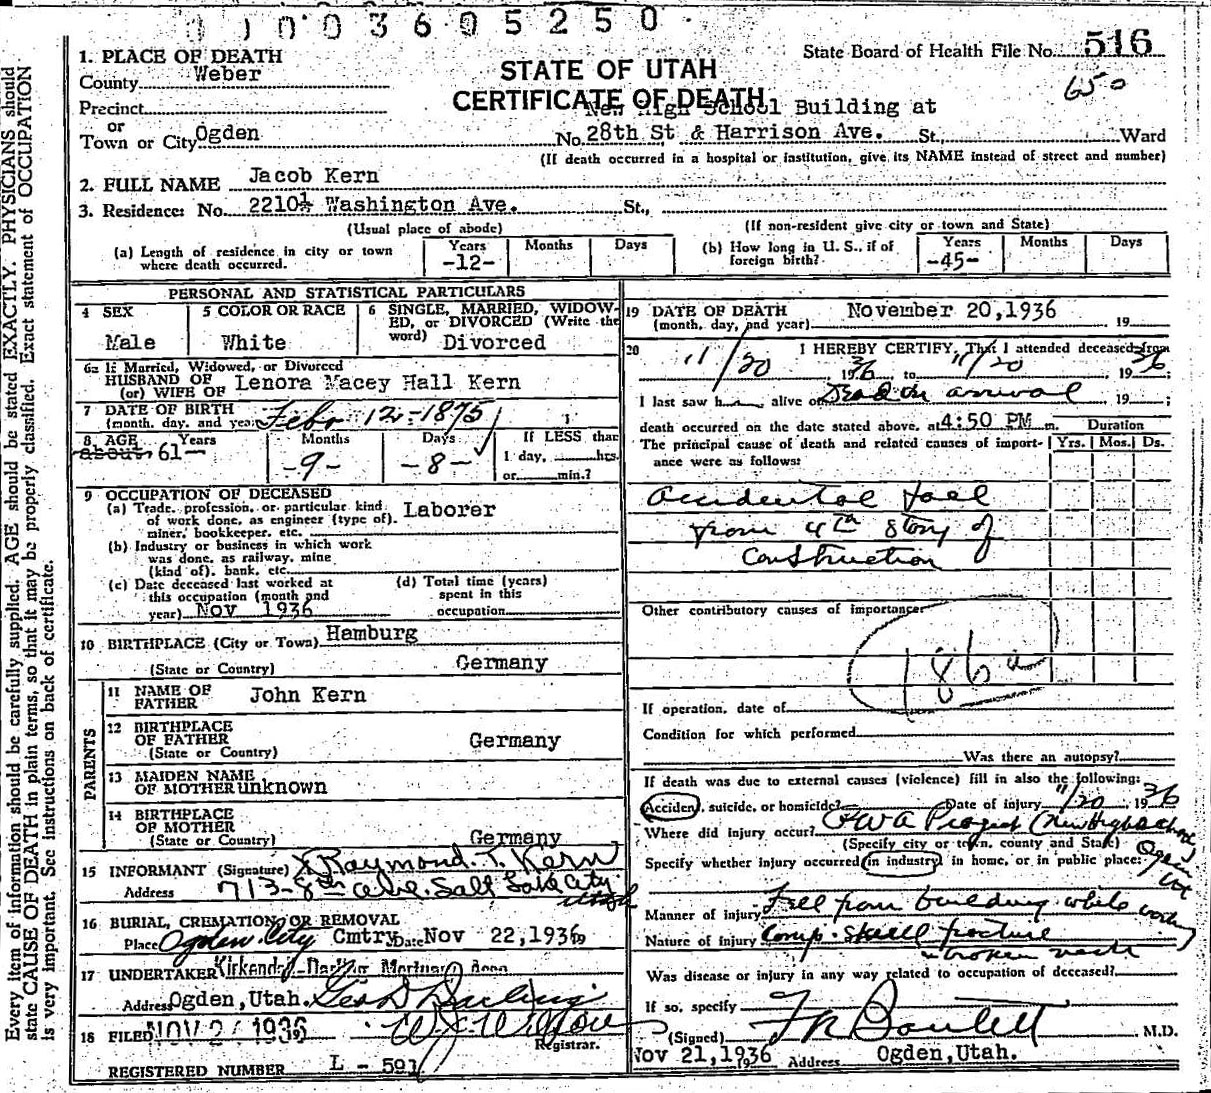 1 1 0 0 3 6 0 5 2 5 0
State Board of Health File No. 516
650
STATE OF UTAH
CERTIFICATE OF DEATH
1. PLACE OF DEATH
County Weber
Precinct
or
Town or City Ogden
New High School Building at
No. 28th St & Harrison Ave. St., Ward
(If death occurred in a hospital or institution, give its NAME instead of street and number)
2. FULL NAME Jacob Kern
3. Residence: No. 2210½ Washington Ave. St.,
(Usual place of abode) (If non-resident give city or town and State)
(a) Length of residence in city or town where death occurred. Years -12- Months Days
(b) How long in U. S., if of foreign birth? Years -45- Months Days
PERSONAL AND STATISTICAL PARTICULARS
4 SEX Male
5 COLOR OR RACE White
6 SINGLE, MARRIED, WIDOWED, or DIVORCED (Write the word) Divorced
6a If Married, Widowed, or Divorced
HUSBAND OF
(or) WIFE OF Lenora Macey Hall Kern
7 DATE OF BIRTH
(month, day, and year) Feb. 12 - 1875
8 AGE Years Months Days If LESS than
about 61 -9- -8- 1 day, hrs.
or min.?
9 OCCUPATION OF DECEASED
(a) Trade, profession, or particular kind
of work done, as engineer (type of), Laborer
miner, bookkeeper, etc.
(b) Industry or business in which work
was done, as railway, mine
(kind of), bank, etc.
(c) Date deceased last worked at
this occupation (month and
year) Nov 1936
(d) Total time (years)
spent in this
occupation
10 BIRTHPLACE (City or Town) Hamburg
(State or Country) Germany
PARENTS
11 NAME OF
FATHER John Kern
12 BIRTHPLACE
OF FATHER
(State or Country) Germany
13 MAIDEN NAME
OF MOTHER unknown
14 BIRTHPLACE
OF MOTHER
(State or Country) Germany
15 INFORMANT (Signature) X Raymond T. Kern
Address 713 - 8th Ave. Salt Lake City
Utah
16 BURIAL, CREMATION, OR REMOVAL
Place Ogden City Cmtry Date Nov 22, 1936 19
17 UNDERTAKER Kirkendall-Darling Mortuary Assn
Address Ogden, Utah. Geo D Darling
18 FILED NOV 24 1936
Registrar.
REGISTERED NUMBER L - 591
19 DATE OF DEATH November 20, 1936
(month, day, and year) 19
20 I HEREBY CERTIFY, That I attended deceased from
11/20 1936 to 11/20, 1936
I last saw h alive on Dead on arrival, 19 ;
death occurred on the date stated above, at 4:50 PM m. Duration
The principal cause of death and related causes of importance were as follows: Yrs. Mos. Ds.
Accidental fall
from 4th story of
Construction
Other contributory causes of importance:
186a
If operation, date of
Condition for which performed
Was there an autopsy?
If death was due to external causes (violence) fill in also the following:
Accident, suicide, or homicide? Date of injury 11/20, 1936
Where did injury occur? PWA Project (New High School)
Ogden Ut
(Specify city or town, county and State)
Specify whether injury occurred in industry, in home, or in public place:
Manner of injury Fell from building while working
Nature of injury Comp. skull fracture
broken neck
Was disease or injury in any way related to occupation of deceased?
If so, specify
(Signed) M.D.
Nov 21, 1936 19 Address Ogden, Utah.
Every item of information should be carefully supplied. AGE should be stated EXACTLY. PHYSICIANS should
state CAUSE OF DEATH in plain terms, so that it may be properly classified. Exact statement of OCCUPATION
is very important. See instructions on back of certificate.